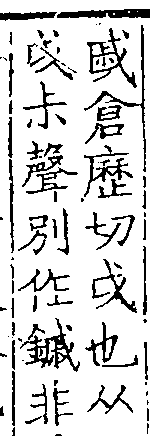 戚倉歷切戉也从
戉尗聲別作鏚非